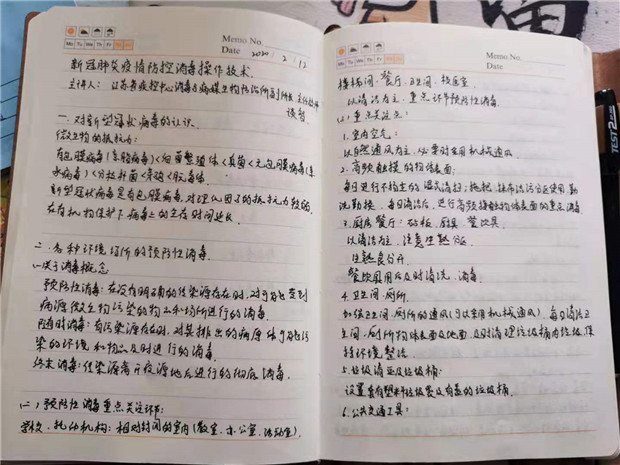 Memo No.
Mo Tu We Th Fr Sa Su
Date 2020 / 2 / 12
新冠肺炎疫情防控消毒操作技术.
主讲人: 江苏省疾控中心消毒与病媒生物防治所副所长 主任技师
一. 对新型冠状病毒的认识.
微生物的抵抗力:
有包膜病毒(亲脂病毒)<细菌繁殖体<真菌<无包膜病毒(亲
水病毒)<分枝杆菌<芽孢<朊毒体
新型冠状病毒是有包膜病毒, 对理化因子的抵抗力较弱,
在有机物保护下病毒的生存时间延长.
二. 各种环境场所的预防性消毒.
(一)关于消毒概念
预防性消毒: 在没有明确的传染源存在时, 对可能受到
病源微生物污染的物品和场所进行的消毒.
随时消毒: 有污染源存在时, 对其排出的病原体可能污
染的环境和物品及时进行的消毒.
终末消毒: 传染源离开疫源地后进行的彻底消毒.
(二) 预防性消毒重点关注环节:
学校、托幼机构: 相对封闭的室内(教室、办公室、活动室).
Memo No.
Mo Tu We Th Fr Sa Su
Date
楼梯间、餐厅、卫生间、校医室.
以清洁为主, 重点环节预防性消毒.
(1)重点关注点:
1. 室内空气:
以自然通风为主, 必要时启用机械通风.
2. 高频触摸的物体表面:
每日进行不构尘的湿式清扫; 拖把、抹布洁污分区使用 勤
洗勤换. 每日清洁后, 进行高频接触物体表面的重点消毒
3. 厨房餐厅: 砧板、厨具、餐饮具
以清洁为主, 注意生熟分区.
生熟食分开.
餐饮具用后及时清洗、消毒.
4. 卫生间、厕所.
加强卫生间、厕所的通风(可以采用机械通风). 每日清洁卫
生间、厕所物体表面及地面, 及时清理垃圾桶内垃圾, 保
持环境整洁.
5. 垃圾清运及垃圾桶:
设置套有塑料垃圾袋及有盖的垃圾桶.
6. 公共交通工具:
TEST 2